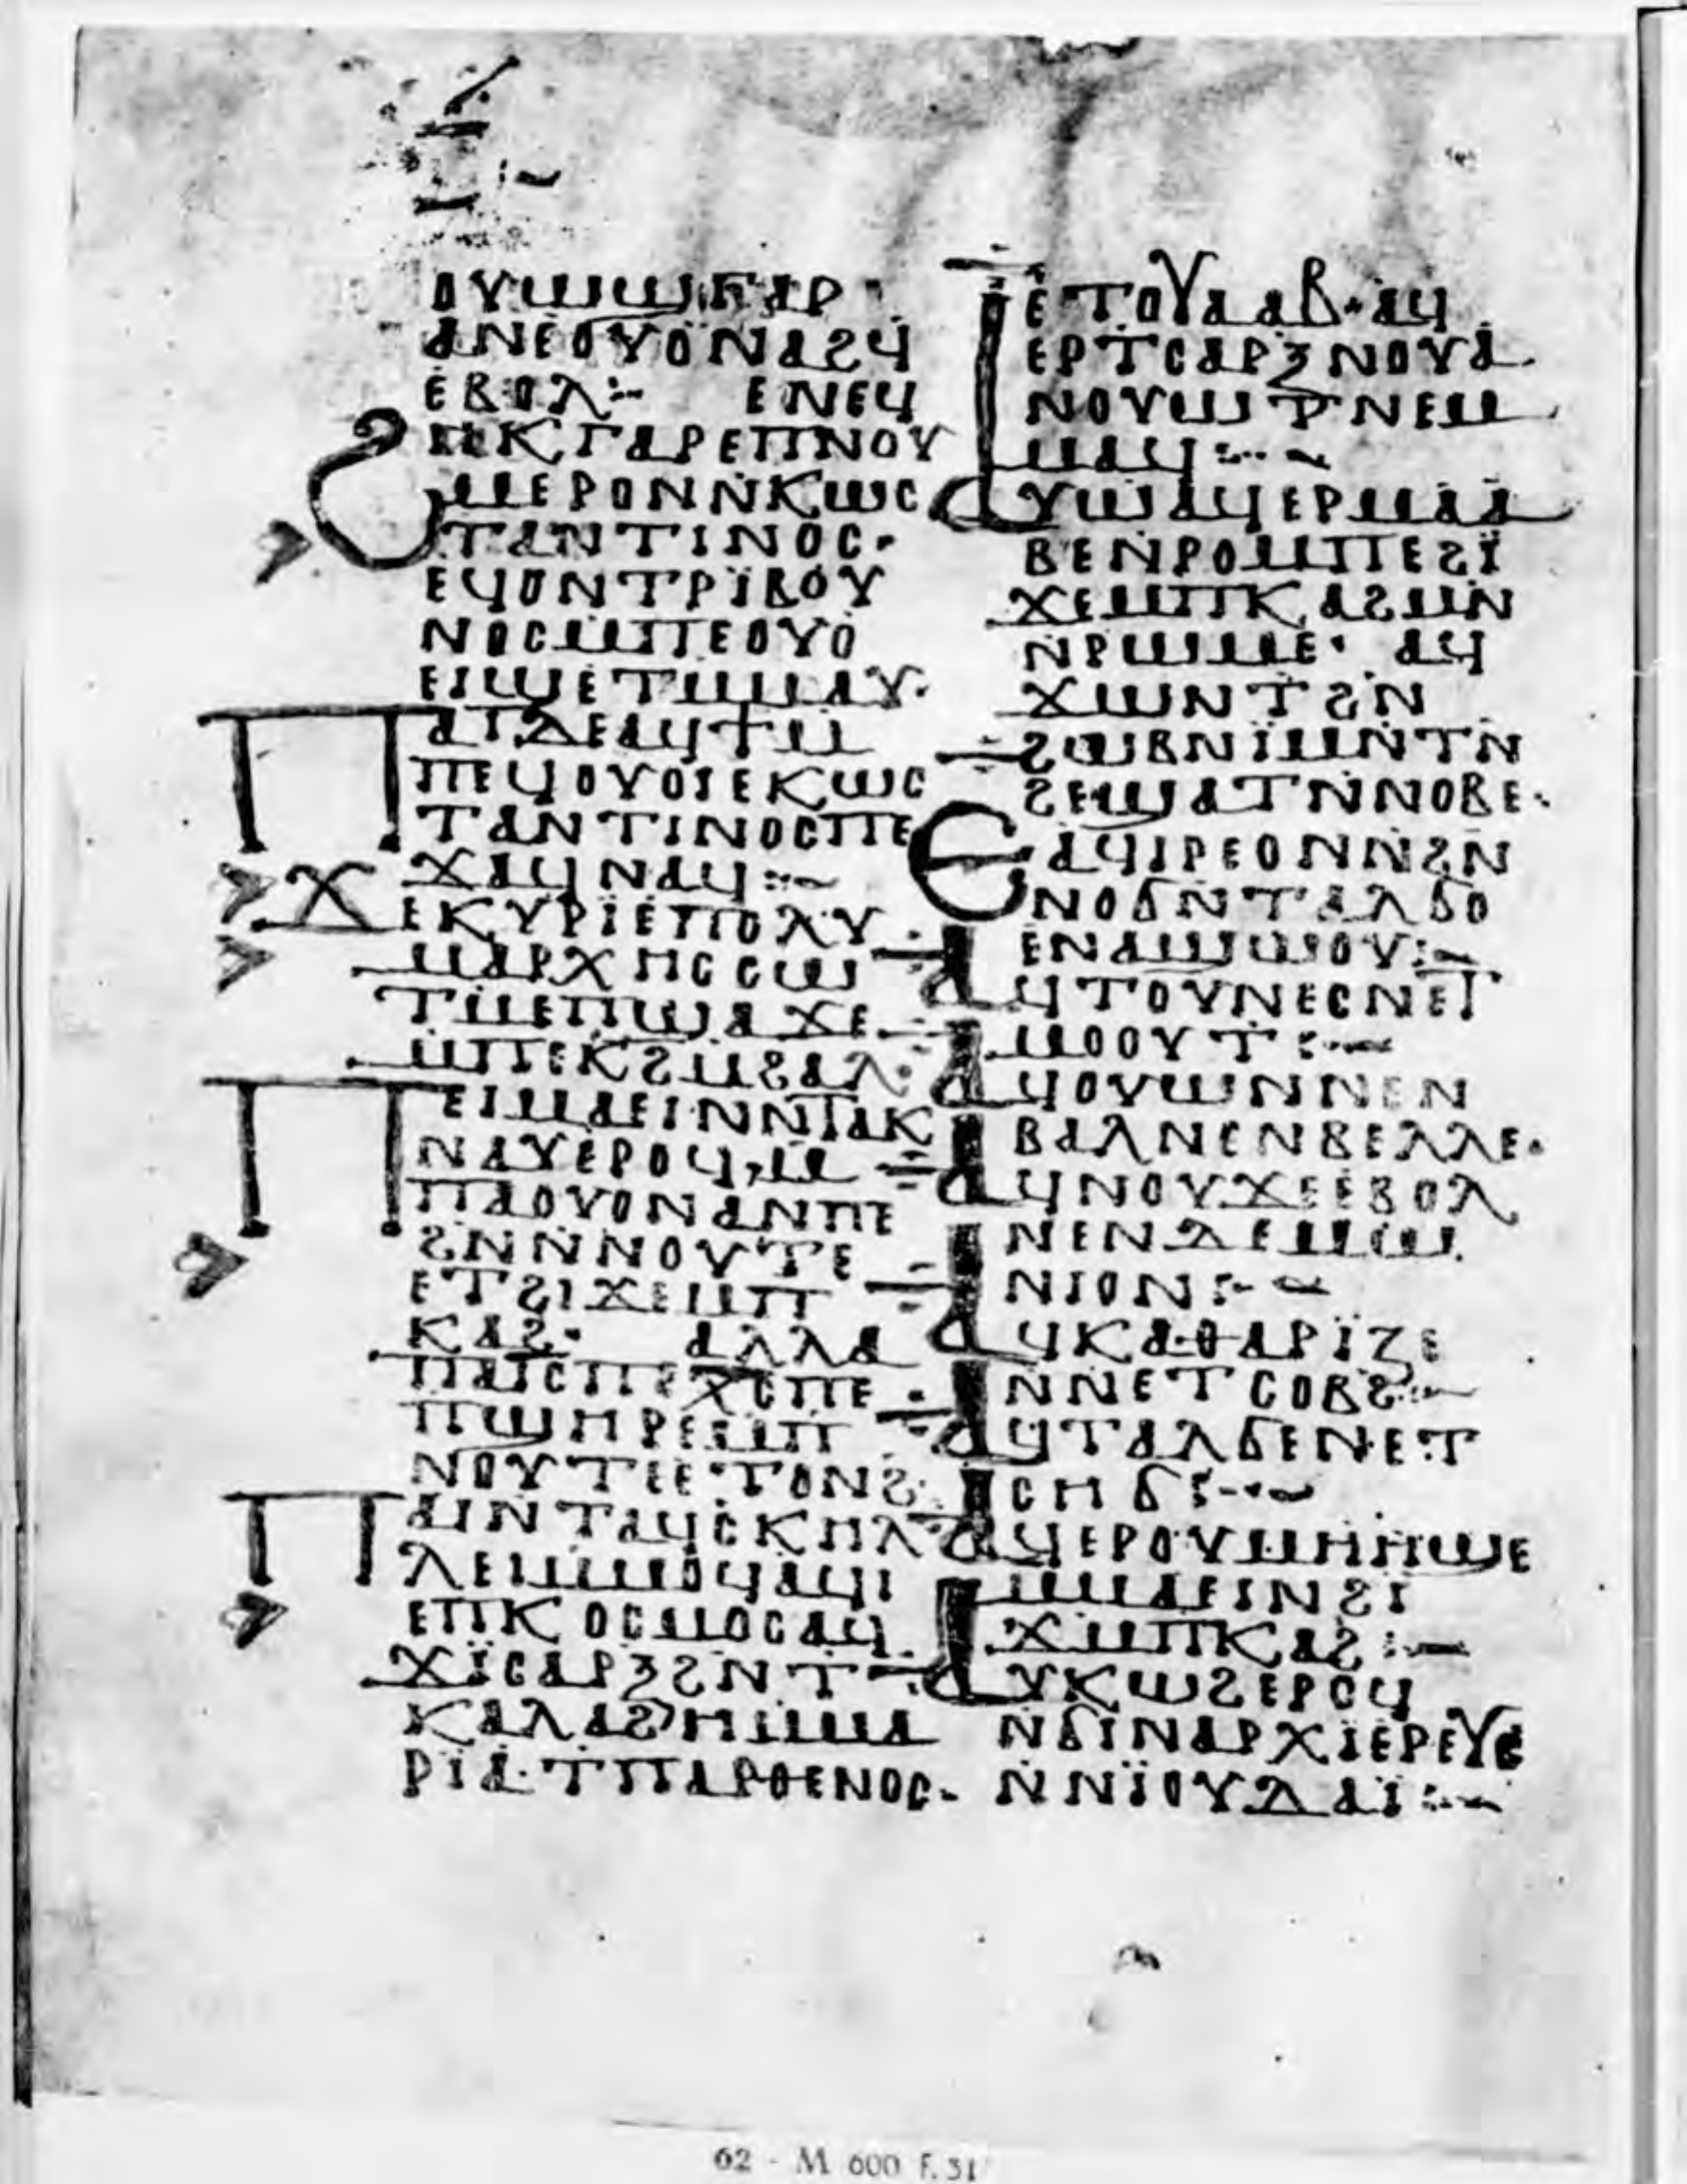 ⲟⲩϣϣⲏⲅⲁⲣ
ⲁⲛⲉⲟⲩⲟⲛⲁϩϥ
ⲉⲃⲟⲗ:~ ⲉⲛⲉϥ
ϩⲛⲕⲅⲁⲣⲉⲡⲛⲟⲩ
ⲙⲉⲣⲟⲛⲛⲕⲱⲥ
ⲧⲁⲛⲧⲓⲛⲟⲥ·
ⲉϥⲟⲛⲧⲣⲓⲃⲟⲩ
ⲛⲟⲥⲙⲡⲉⲟⲩⲟ
ⲉⲓϣⲉⲧⲙⲙⲁⲩ·
ⲡⲁⲓⲇⲉⲁϥϯⲙ
ⲡⲉϥⲟⲩⲟⲓⲉⲕⲱⲥ
ⲧⲁⲛⲧⲓⲛⲟⲥⲡⲉ
ϫⲁϥⲛⲁϥ:~
ϫⲉⲕⲩⲣⲓⲉⲡⲟⲗⲩ
ⲙⲁⲣⲭⲏⲥⲥⲱ
ⲧⲙⲉⲡϣⲁϫⲉ
ⲙⲡⲉⲕϩⲙϩⲁⲗ·
ⲡⲉⲓⲙⲁⲉⲓⲛⲛⲧⲁⲕ
ⲛⲁⲩⲉⲣⲟϥ,ⲙ
ⲡⲁⲟⲩⲟⲛⲁⲛⲡⲉ
ϩⲛⲛⲛⲟⲩⲧⲉ
ⲉⲧϩⲓϫⲉⲙⲡ
ⲕⲁϩ· ⲁⲗⲗⲁ
ⲡⲁⲓⲥⲡⲉⲭⲥⲡⲉ
ⲡϣⲏⲣⲉⲙⲡ
ⲛⲟⲩⲧⲉⲉⲧⲟⲛϩ
ⲡⲁⲓⲛⲧⲁϥⲥⲕⲏⲗ
ⲗⲉⲓⲙⲙⲟϥⲁϥⲓ
ⲉⲡⲕⲟⲥⲙⲟⲥⲁϥ
ϫⲓⲥⲁⲣⲝϩⲛⲧ
ⲕⲁⲗⲁϩⲏⲙⲙⲁ
ⲣⲓⲁ·ⲧⲡⲁⲣⲑⲉⲛⲟⲥ·
ⲉⲧⲟⲩⲁⲁⲃ·ⲁϥ
ⲉⲣⲧⲥⲁⲣⲝⲛⲟⲩⲁ
ⲛⲟⲩⲱⲧⲛⲉⲙ
ⲙⲁϥ:~
ⲁⲩⲱⲁϥⲉⲣⲙⲁⲁ
ⲃⲉⲛⲣⲟⲙⲡⲉϩⲓ
ϫⲉⲙⲡⲕⲁϩⲙⲛ
ⲛⲣⲱⲙⲉ· ⲁϥ
ϫⲱⲛⲧϩⲛ
ϩⲱⲃⲛⲓⲙⲛⲧⲛ
ϩⲉϣⲁⲧⲛⲛⲟⲃⲉ·
ⲉⲁϥⲓⲣⲉⲟⲛⲛϩⲛ
ⲛⲟϭⲛⲧⲁⲗϭⲟ
ⲉⲛⲁϣⲱⲟⲩ:~
ⲁϥⲧⲟⲩⲛⲉⲥⲛⲉⲧ
ⲙⲟⲟⲩⲧ:~
ⲁϥⲟⲩⲱⲛⲛⲉⲛ
ⲃⲁⲗⲛⲉⲛⲃⲉⲗⲗⲉ·
ⲁϥⲛⲟⲩϫⲉⲉⲃⲟⲗ
ⲛⲉⲛⲇⲉⲙⲱ
ⲛⲓⲟⲛ:~
ⲁϥⲕⲁⲑⲁⲣⲓⲍⲉ
ⲛⲛⲉⲧⲥⲟⲃϩ:~
ⲁϥⲧⲁⲗϭⲉⲛⲉⲧ
ⲥⲏϭ:~
ⲁϥⲉⲣⲟⲩⲙⲏⲏϣⲉ
ⲙⲙⲁⲉⲓⲛϩⲓ
ϫⲙⲡⲕⲁϩ:~
ⲁⲩⲕⲱϩⲉⲣⲟϥ
ⲛϭⲓⲛⲁⲣⲭⲓⲉⲣⲉⲩⲥ
ⲛⲛⲓⲟⲩⲇⲁⲓ:~
62 - M 600 F. 31